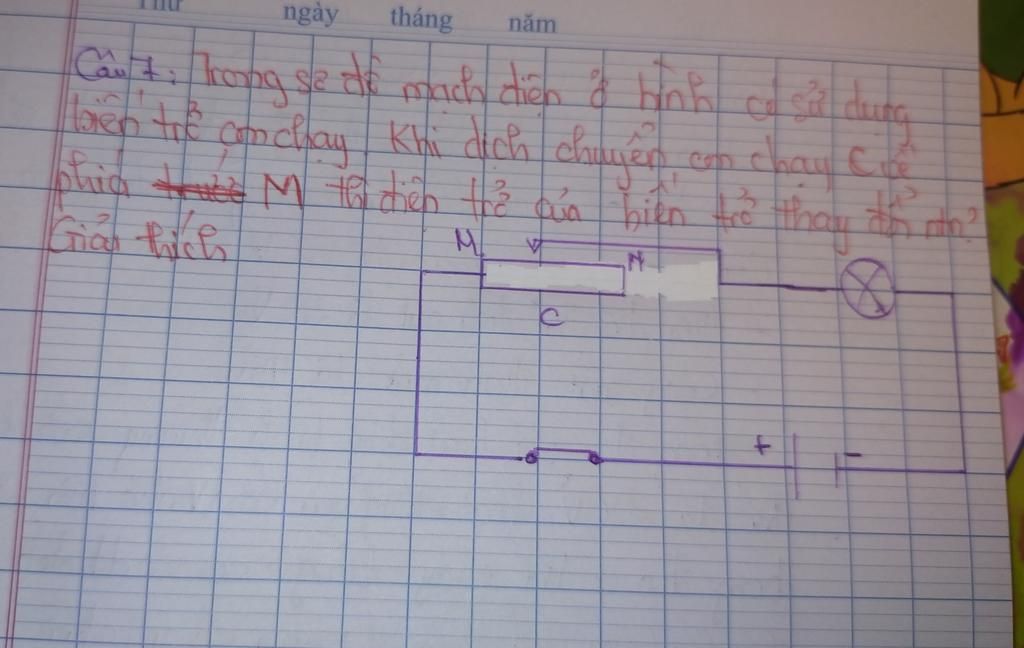 Thứ ngày tháng năm
Câu 7: Trong sơ đồ mạch điện ở hình có sử dụng
biến trở con chạy Khi dịch chuyển con chạy C về
phía M thì điện trở của biến trở thay đổi ntn?
Giải thích
M N
C
+ -